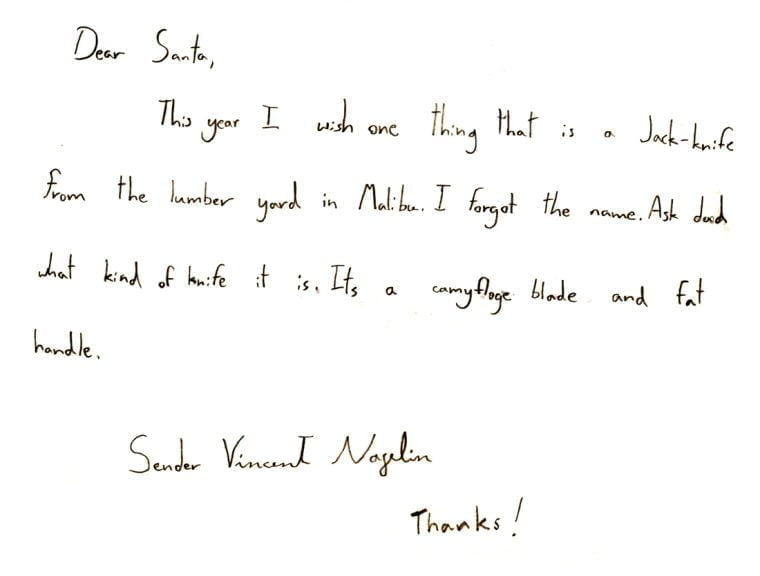 Dear Santa,
This year I wish one thing that is a Jack-knife
from the lumber yard in Malibu. I forgot the name. Ask dad
what kind of knife it is. Its a camyfloge blade and fat
handle.
Sender Vincent Nagelin
Thanks!